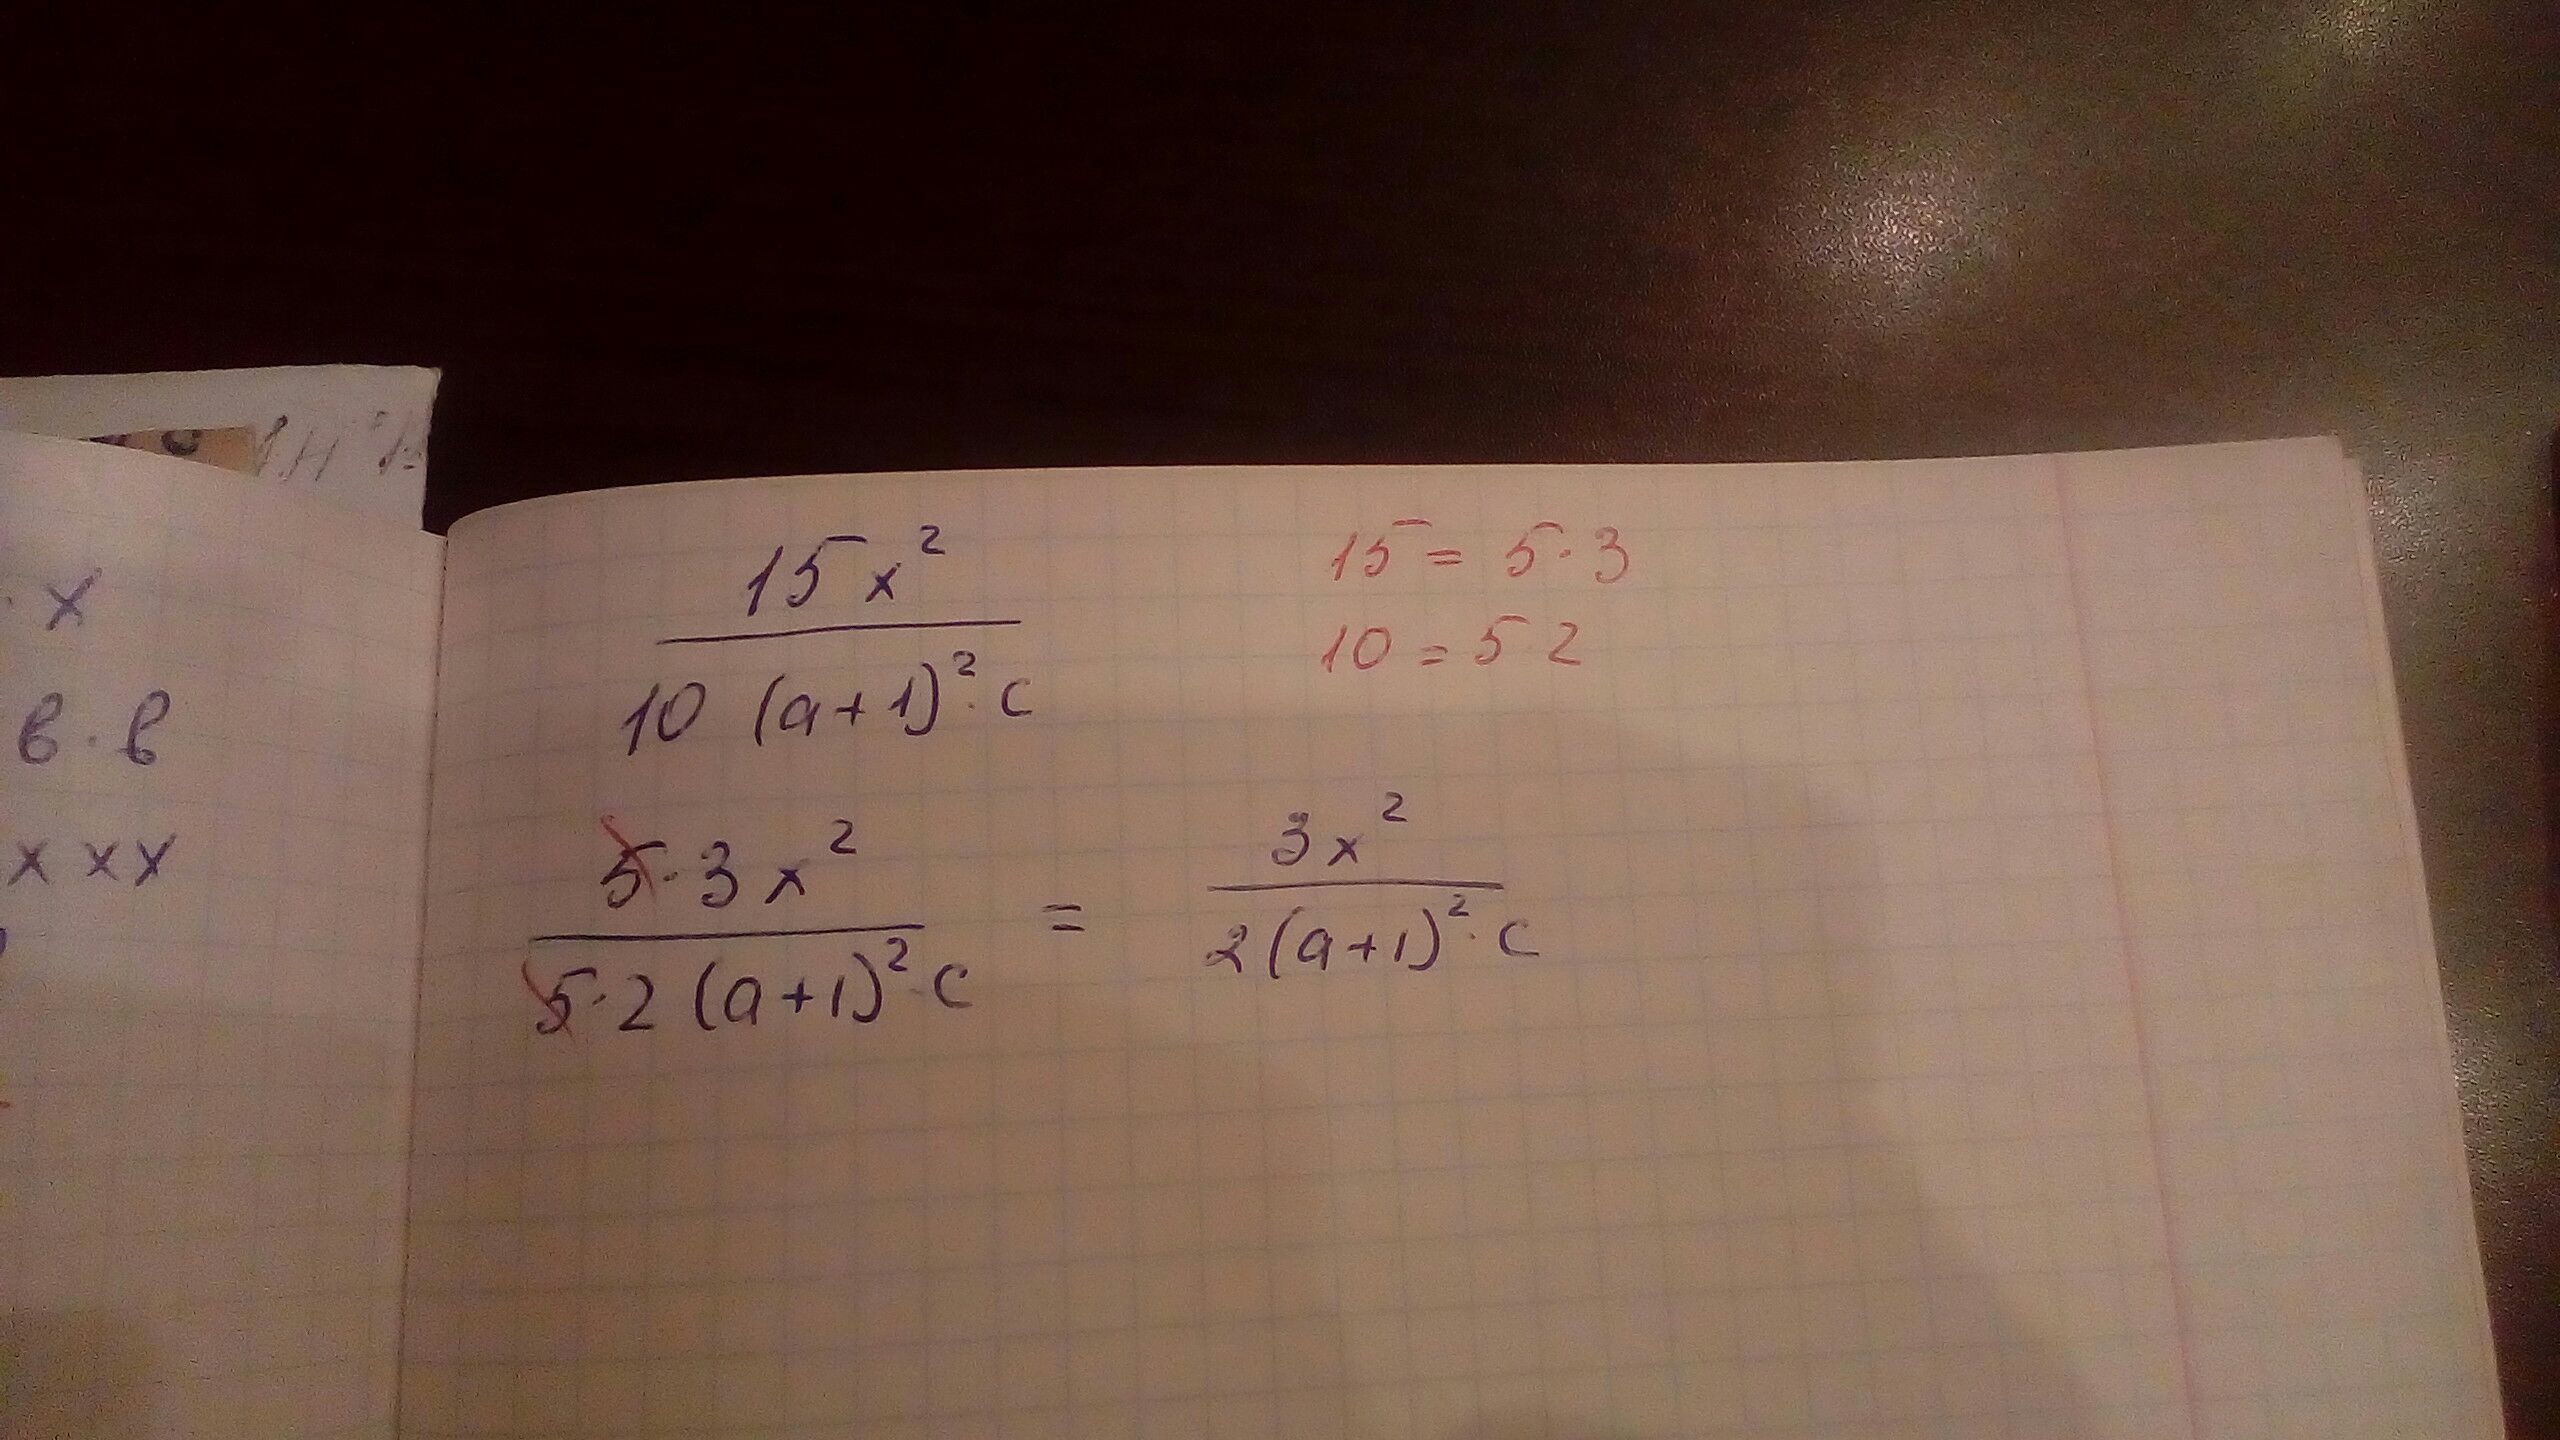 x
в · в
x x x
15x²
10 (a+1)² · c
15 = 5 · 3
10 = 5 · 2
5 · 3x²
5 · 2 (a+1)² · c
=
3x²
2 (a+1)² · c